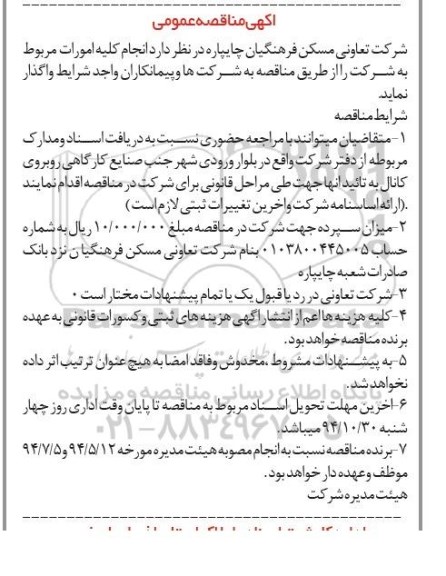 اگهی مناقصه عمومی
شرکت تعاونی مسکن فرهنگیان چایپاره در نظر دارد انجام کلیه امورات مربوط
به شرکت را از طریق مناقصه به شرکت ها و پیمانکاران واجد شرایط واگذار
نماید.
شرایط مناقصه
۱-متقاضیان میتوانند با مراجعه حضوری نسبت به دریافت اسناد و مدارک
مربوطه از دفتر شرکت واقع در بلوار ورودی شهر جنب صنایع کارگاهی روبروی
کانال به تائید انها جهت طی مراحل قانونی برای شرکت در مناقصه اقدام نمایند
.(ارائه اساسنامه شرکت واخرین تغییرات ثبتی لازم است)
۲-میزان سپرده جهت شرکت در مناقصه مبلغ ۱۰/۰۰۰/۰۰۰ ریال به شماره
حساب ۰۱۰۳۸۰۰۴۴۵۰۰۵ بنام شرکت تعاونی مسکن فرهنگیان نزد بانک
صادرات شعبه چایپاره
۳-شرکت تعاونی در رد یا قبول یک یا تمام پیشنهادات مختار است ۰
۴-کلیه هزینه ها اعم از انتشار اگهی هزینه های ثبتی و کسورات قانونی به عهده
برنده مناقصه خواهد بود.
۵-به پیشنهادات مشروط ،مخدوش وفاقد امضا به هیچ عنوان ترتیب اثر داده
نخواهد شد.
۶-اخرین مهلت تحویل اسناد مربوط به مناقصه تا پایان وقت اداری روز چهار
شنبه ۹۴/۱۰/۳۰ میباشد.
۷-برنده مناقصه نسبت به انجام مصوبه هیئت مدیره مورخه ۹۴/۵/۱۲ و ۹۴/۷/۵
موظف و عهده دار خواهد بود.
هیئت مدیره شرکت
پایگاه اطلاع رسانی مناقصه و مزایده
۰۲۱-۸۸۳۴۹۶۷۰